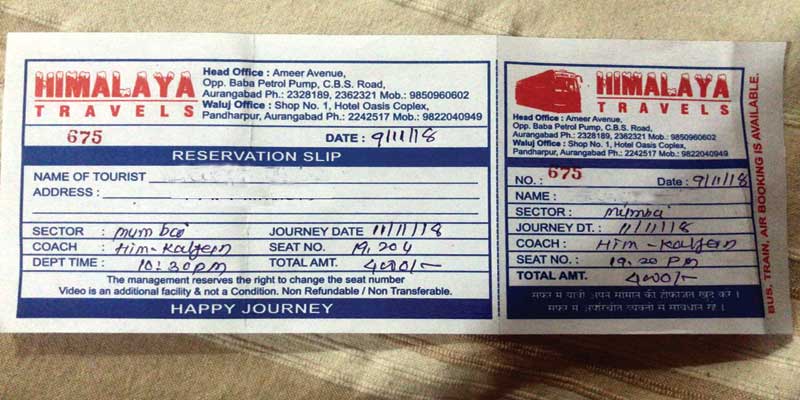 HIMALAYA
TRAVELS
Head Office : Ameer Avenue,
Opp. Baba Petrol Pump, C.B.S. Road,
Aurangabad Ph.: 2328189, 2362321 Mob.: 9850960602
Waluj Office : Shop No. 1, Hotel Oasis Coplex,
Pandharpur, Aurangabad Ph.: 2242517 Mob.: 9822040949
675 DATE : 9/11/18
RESERVATION SLIP
NAME OF TOURIST
ADDRESS :
SECTOR : mumbai JOURNEY DATE 11/11/18
COACH : Him - SEAT NO. 19.20
DEPT TIME : 10:30pm TOTAL AMT. 4000/-
The management reserves the right to change the seat number
Video is an additional facility & not a Condition. Non Refundable / Non Transferable.
HAPPY JOURNEY
HIMALAYA
TRAVELS
Head Office : Ameer Avenue,
Opp. Baba Petrol Pump, C.B.S. Road,
Aurangabad Ph.: 2328189, 2362321 Mob.: 9850960602
Waluj Office : Shop No. 1, Hotel Oasis Coplex,
Pandharpur, Aurangabad Ph.: 2242517 Mob.: 9822040949
NO. : 675 Date : 9/11/18
NAME :
SECTOR : mumbai
JOURNEY DT. : 11/11/18
COACH : Him -
SEAT NO. : 19.20 PM
TOTAL AMT. 4000/-
सफर में यात्री अपने सामान की हिफाजत खुद करें ।
सफर में अपरिचीत व्यक्ती से सावधान रहे ।
BUS, TRAIN, AIR BOOKING IS AVAILABLE.